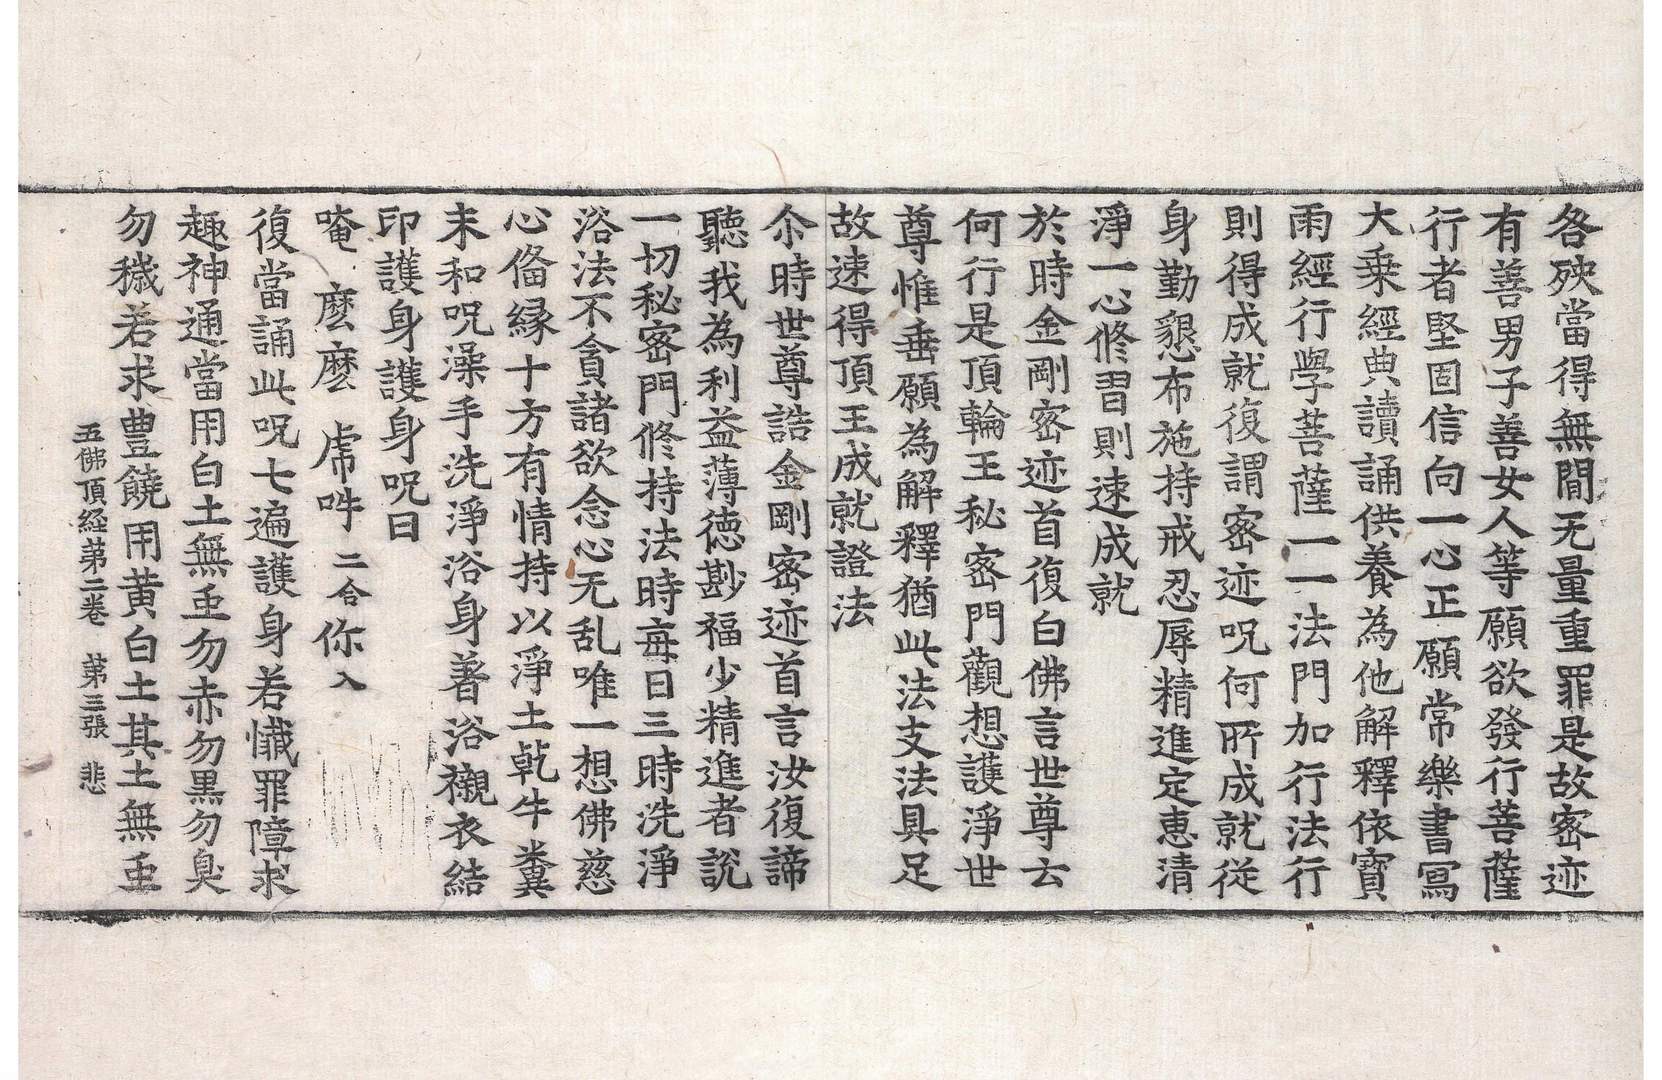 各殃當得無閒无量重罪是故密迹
有善男子善女人等願欲發行菩薩
行者堅固信向一心正願常樂書寫
大乗經典讀誦供養為他解釋依寶
雨經行學菩薩一一法門加行法行
則得成就復謂密迹呪何所成就従
身勤懇布施持戒忍辱精進定恵清
淨一心修習則速成就
於時金剛密迹首復白佛言世尊云
何行是頂輪王秘密門觀想護淨世
尊惟垂願為解釋猶此法支法具足
故速得頂王成就證法
尒時世尊誥金剛密迹首言汝復諦
聽我為利益薄徳尠福少精進者說
一切秘密門修持法時每日三時洗淨
浴法不貪諸欲念心无乱唯一想佛慈
心俻縁十方有情持以淨土乹牛糞
末和呪澡手洗淨浴身著浴襯衣結
印護身護身呪曰
唵 麽麽 虎𤙖 二合 你 入
復當誦此呪七遍護身若懺罪障求
趣神通當用白土無䖝勿赤勿黒勿臭
勿穢若求豊饒用黄白土其土無䖝
五佛頂経第二巻 第三張 悲